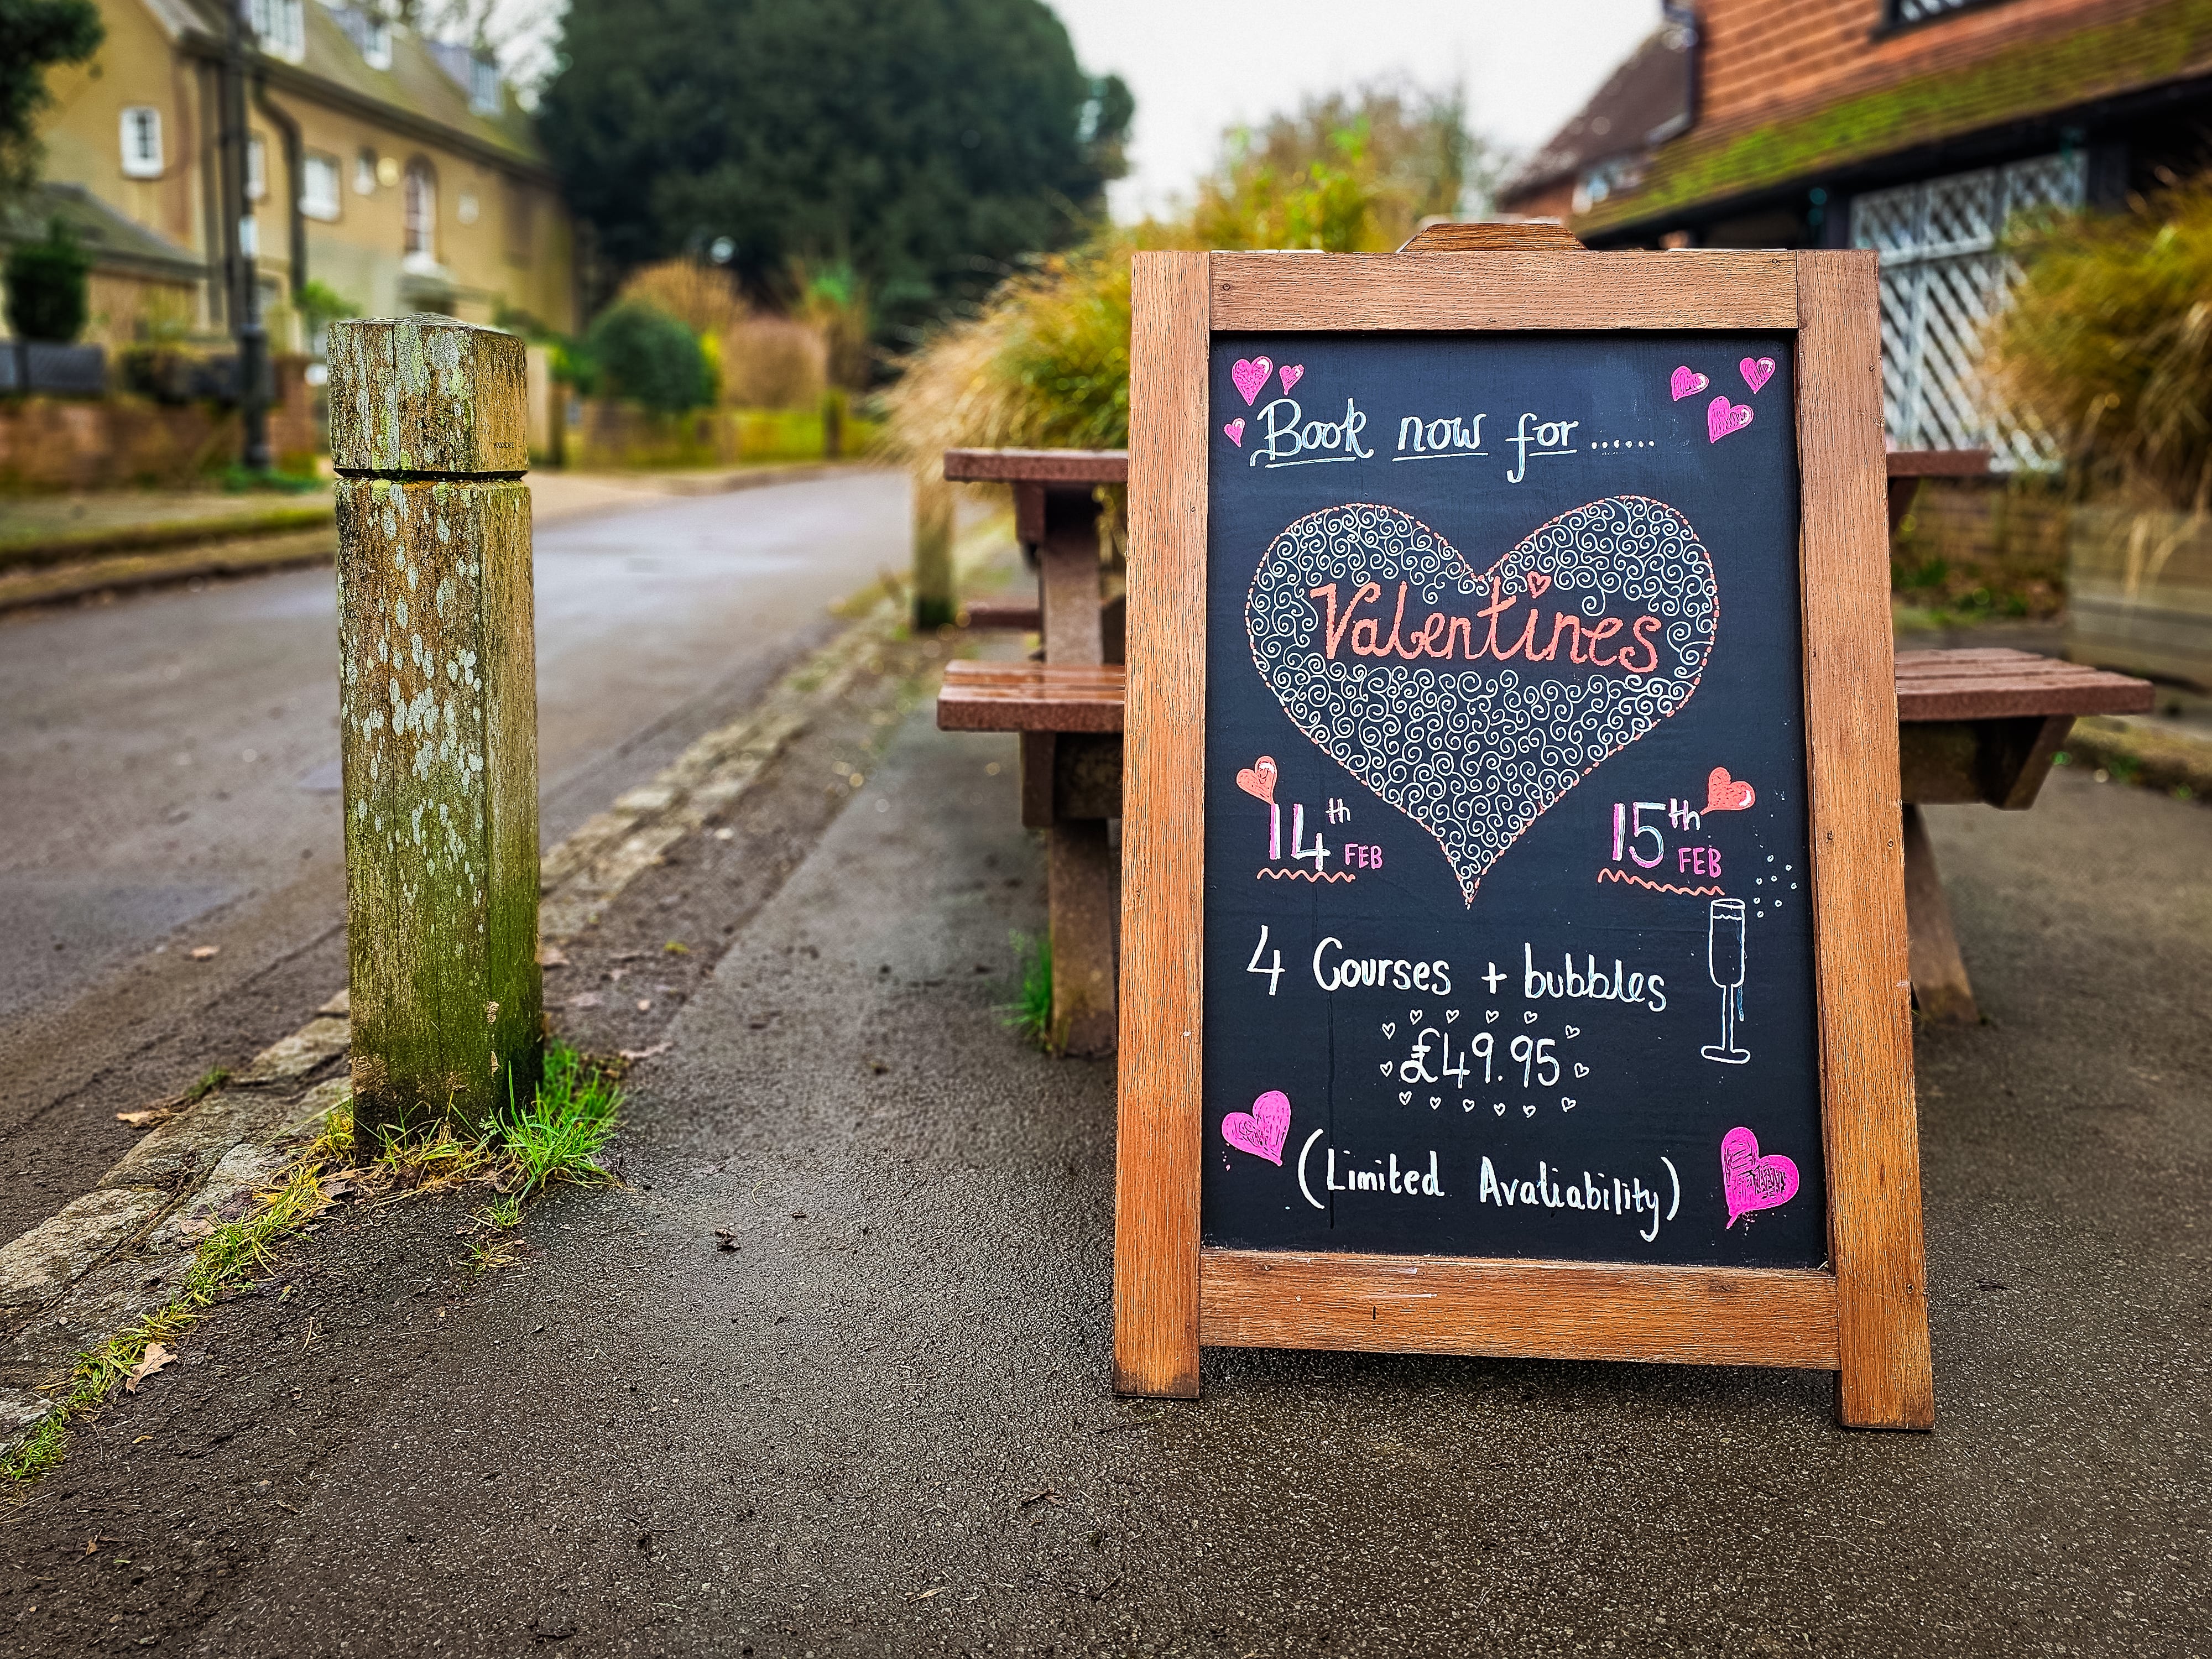 Book now for ......
Valentines
14th FEB
15th FEB
4 Courses + bubbles
£49.95
(Limited Avaliability)